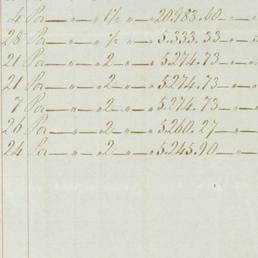 4 Por „ „ 1½ „ 20.983.60 „
28 Por „ „ ½ „ 5.333.33 „
21 Por „ „ 2 „ 5.274.73 „
21 Por „ „ 2 „ 5.274.73 „
7 Por „ „ 2 „ 5.274.73 „
26 Por „ „ 2 „ 5.260.27 „
24 Por „ „ 2 „ 5.245.90 „